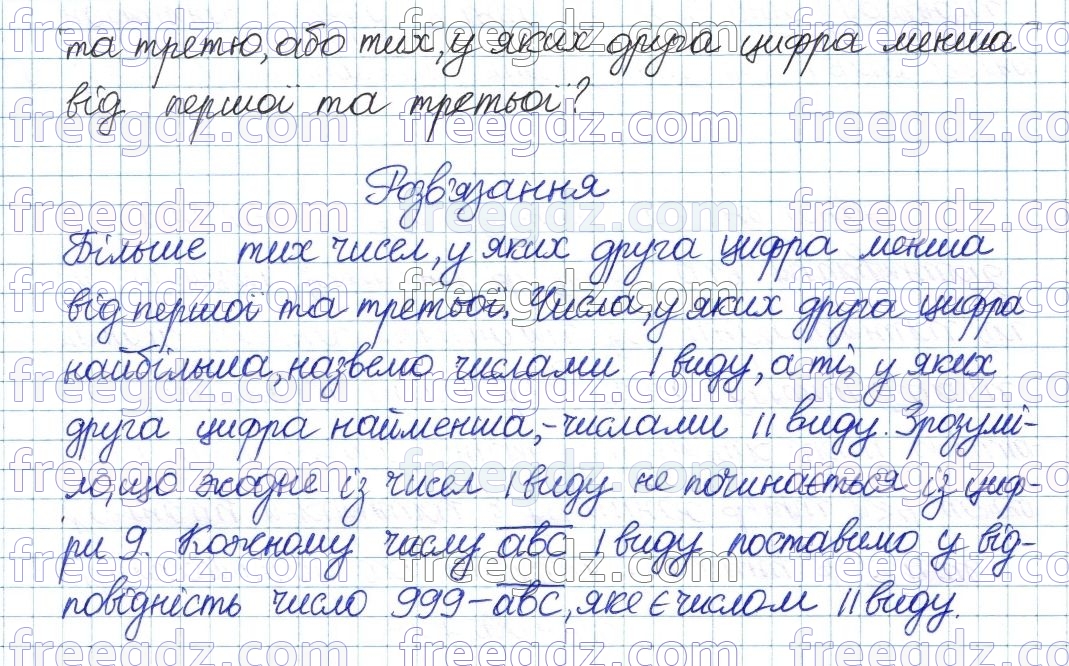 та третю, або тих, у яких друга цифра менша
від першої та третьої?
Розв'язання
Більше тих чисел, у яких друга цифра менша
від першої та третьої. Числа, у яких друга цифра
найбільша, назвемо числами I виду, а ті, у яких
друга цифра найменша, - числами II виду. Зрозумі-
ло, що жодне із чисел I виду не починається із циф-
ри 9. Кожному числу abc I виду поставимо у від-
повідність число 999-abc, яке є числом II виду.